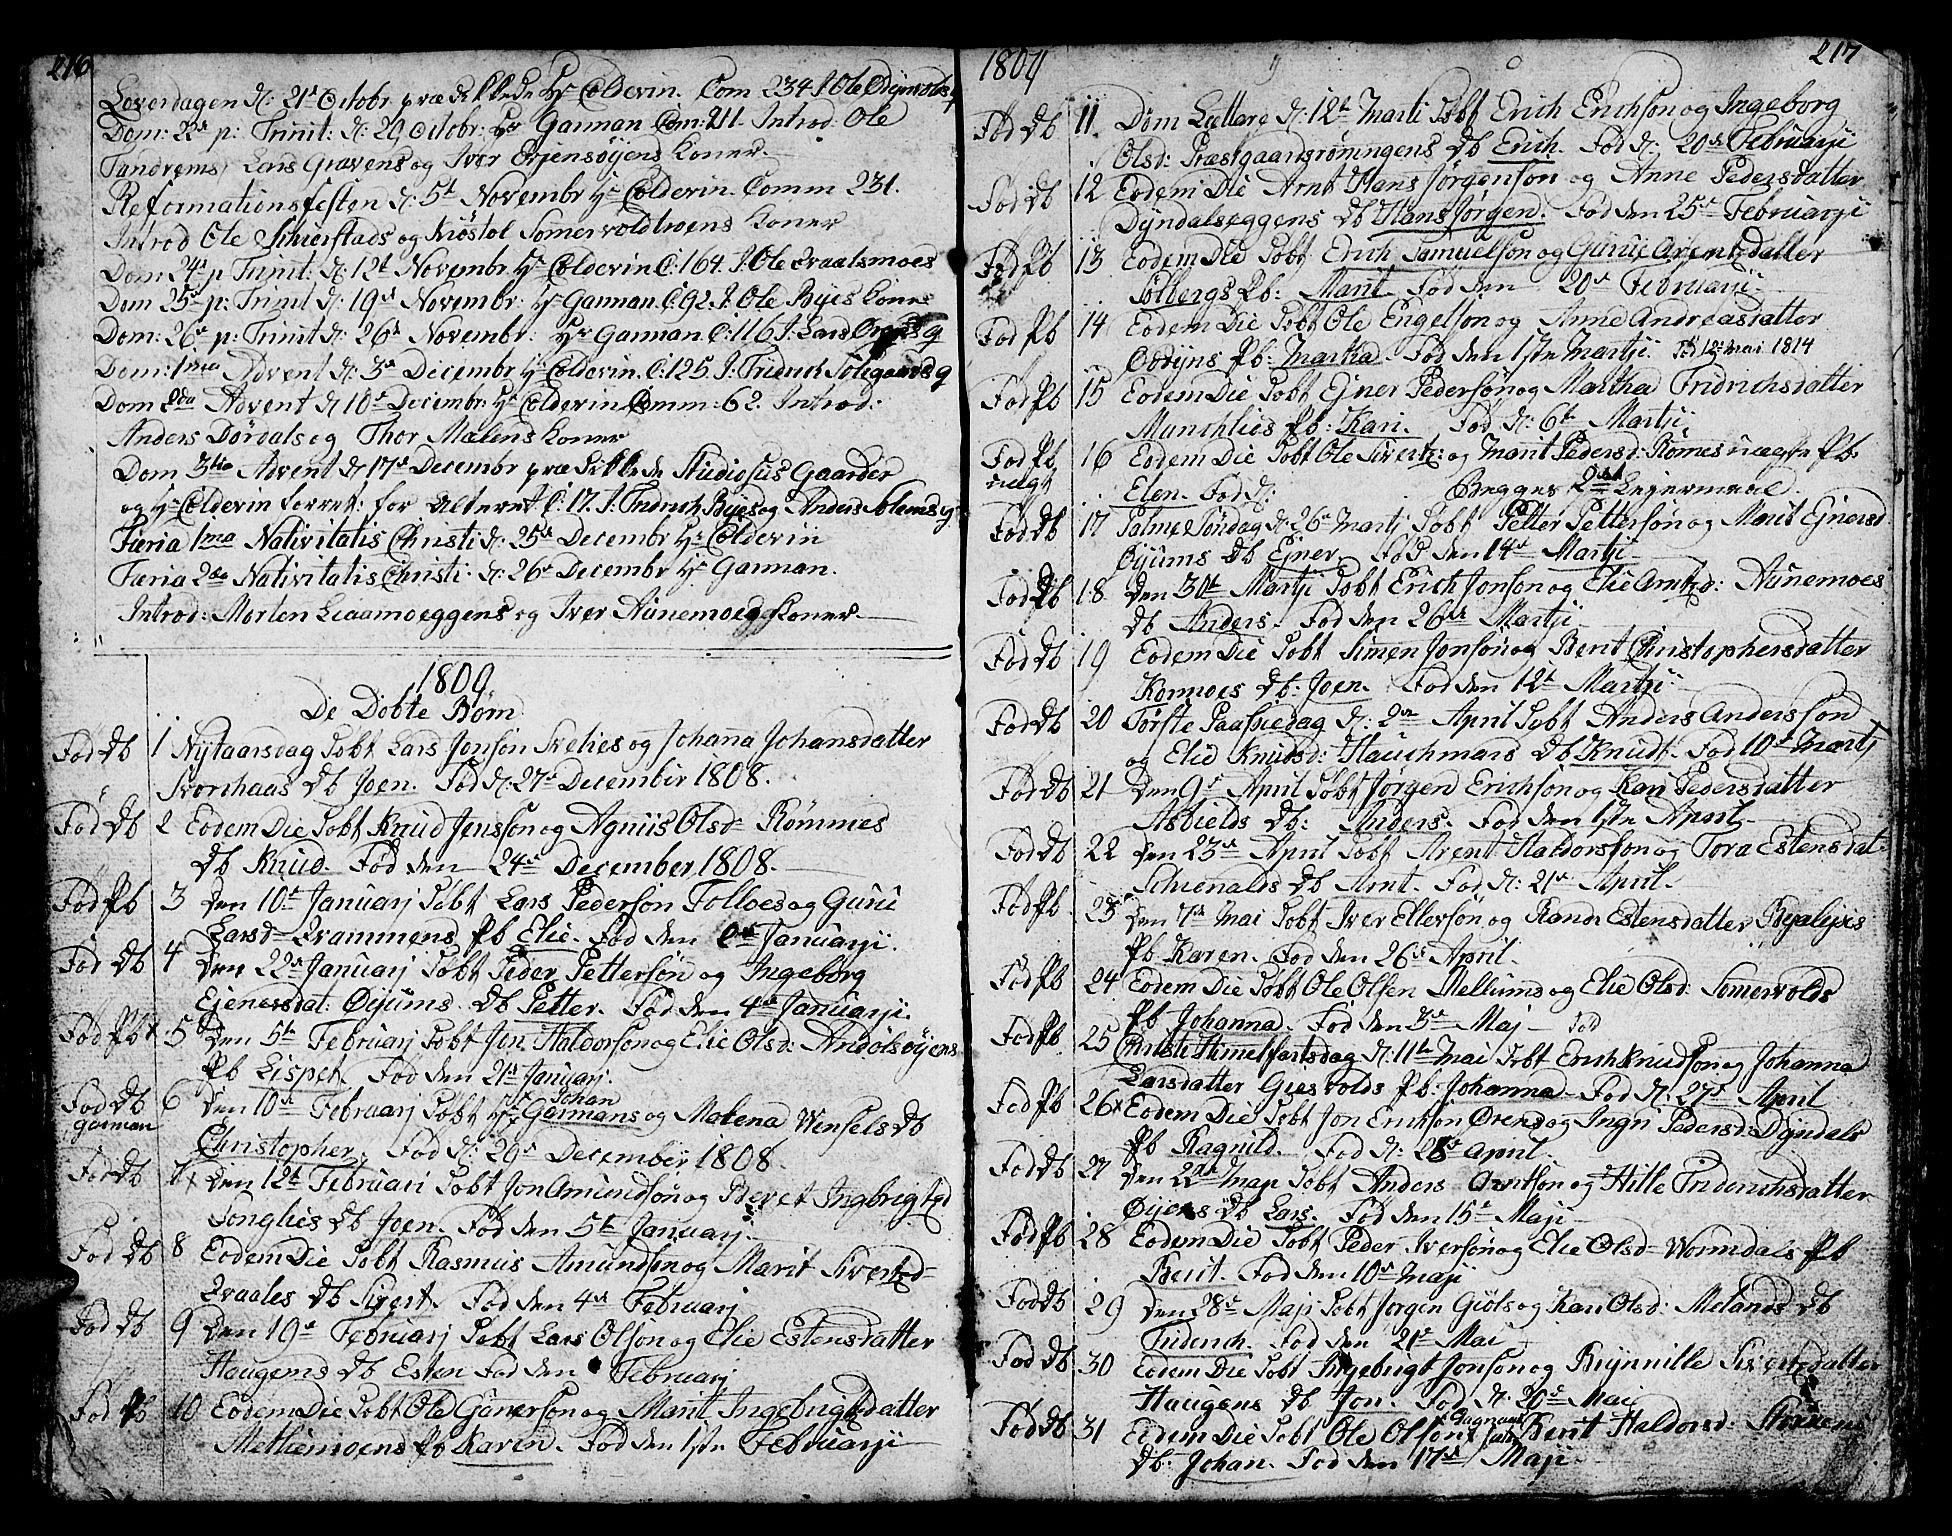 216
Loverdagen d: 21d Octobr. prædikkede Hr Colderin. Com 234 I Ole
Dom: 22d p: Trinit: d: 29 Octobr: Hr Garman Com: 211. Introd: Ole
Tandrems, Lars Grævens og Iver Koner
Reformationsfesten d: 5t Novembr Hr Colderin. Comm 231.
Introd Ole Simerstads og Kiøstol Somervoldtroens Koner
Dom 24d p Trinit: d: 12t Novembr. Hr Colderin C: 164. I Ole Qvaalsmoes
Dom 25d p: Trinit d: 19d Novembr: Hr Garman C: 92. I. Ole Byes Koner
Dom: 26d p: Trinit d: 26d Novembr: Hr Garman. C: 116 I: Lars
Dom: 1ma Advent d: 3d Decembr Hr Colderin. C: 125 I: Fridrich Soligaards q
Dom 2da Advent d 10d Decembr: Hr Colderin Comm: 62. Introd:
Anders Dørdals og Thor Mælens Koner
Dom 3tia Advent d 17d Decembr prædikkede Studiosus Gaarder
og Hr Colderin forret: for Alteret C: 17. I: Fridrich Byes og Anders Solems q
Færia 1ma Nativitatis Christi d: 25d Decembr Hr Colderin
Færia 2da Nativitatis Christi d: 26d Decembr Hr Garman.
Introd: Morten Leaamoeggens og Iver Aunemoegg Koner
1809
De Døbte Børn
Fød Db 1 Nytaarsdag Døbt Lars Jonsøn Svelies og Johana Johansdatter
Svorchaas Db Joen. Fød d: 27d December 1808.
Fød Db 2 Eodem Die Døbt Knud Jenssøn og Agniis Olsd Rømmes
Db Knud. Fød den 24d December 1808.
Fød Pb 3 Den 10d Januarj Døbt Lars Pedersøn Folloes og Guru
Larsd Qvammens Pb Elie. Fød den Januarji.
Fød Db 4 Den 22d Januarj Døbt Peder Pettersøn og Ingeborg
Ejenersdat: Øyums. Db Petter. Fød den 4d Januarji.
Fød Pb 5 Den 5t Februarj Døbt Jon Haldorsøn og Elie Olsd: Andolsøyens
Pb Lispet. Fød den 21d Januarj.
Fød Db 6 Den 10d Februarj Døbt Hr Johan Garmans og Malena Wensels Db
Garman
Christopher. Fød d: 29d December 1808.
Fød Db 7 Den 12t Februari Døbt Jon Amundsøn og Beret Ingbrigtsd
Songlies Db Joen. Fød den 5t Januarj.
Fød Db 8 Eodem Die Døbt Rasmus Amundsøn og Marit Sivertsd
Qvaales Db Sivert. Fød den 4d Februarj
Fød Db 9 Den 19d Februarj Døbt Lars Olsøn og Elie Estensdatter
Haugens Db Esten Fød den Februarj
Fød Pb 10 Eodem Die Døbt Ole Gunersøn og Marit Ingebrigtsdatter
Methemoens Pb Karen. Fød den 1ste Februarji
1809 217
Fød Db 11. Dom Lætare d: 12t Marti Døbt Erich Erichsøn og Ingeborg
Olsd: Præstgaardsrønningens Db Erich. Fød d: 20d Februarji
Fød Db 12 Eodem Die Arnt Hans Jørgensøn og Anne Pedersdatter
Dyndalseggens Db Hans Jørgen. Fød den 25d Februarji
Fød Pb 13 Eodem Die Døbt Erich Samuelsøn og Gunil Arentsdatter
Solbergs Pb: Marit Fød den 20d Februarii
Fød Pb 14 Eodem Die Døbt Ole Engelsøn og Anne Andreasdatter
Pb: Martha. Fød den 1ste Martji. 12 Mai 1814
Fød Pb 15 Eodem Die Døbt Ejner Pedersøn og Martha Fridrichsdatter
Munchlies Pb: Kari. Fød d: 6t Martji
Fød Pb 16 Eodem Die Døbt Ole Sivertz: og Marit Pedersd: Romes uægte Pb.
uægt
Elen. Fød d: Begges 2det Lejermaal.
Fød Db 17 Palme Søndag d: 26d Martj Døbt Petter Pettersøn og Marit Ejnersd
Øyums Db Ejner. Fød den 14d Martji
Fød Db 18 Den 30t Martji Døbt Erich Jonsøn og Elie Arntsd: Aunemoes
Db Anders. Fød den 26d Martji
Fød Db 19 Eodem Die Døbt Simen Jonsøn og Berit Christophersdatter
Konmoes Db: Joen. Fød den 12t Martji
Fød Db 20 Første Paaskedag d: 2d April Døbt Anders Anderssøn
og Elie Knudsd: Hauchmars Db Knud. Fød 10d Martj
Fød Db 21 Den 9d April Døbt Jørgen Erichsøn og Kari Pedersdatter
Asbields Db: Anders. Fød den 1ste April
Fød Db 22 Den 23d April Døbt Arent Haldorssøn og Tora Estensdat
Schienalds Db Arnt. Fød d: 21d April.
Fød Pb 23 Den 7d Mai Døbt Iver Ellersøn og Randi Estensdatter
Pb Karen. Fød den 26d April.
Fød Pb 24 Eodem Die Døbt Ole Olsen Mellums og Elie Olsd: Somervolds
Pb Johanna. Fød den 3d Maj
Fød Pb 25 Christi Himelfartsdag d: 11te Mai Døbt Erich Knudsøn og Johanna
Larsdatter Giesvolds Pb: Johanna. Fød d: 27d April
Fød Pb 26 Eodem Die Døbt Jon Erichsøn Ørens og Ingri Pedersd: Dyndals
Pb Ragnild. Fød d: 28d April.
Fød Db 27 Den 22de Maji Døbt Anders Arntsøn og Hille Friderichsdatter
Øyens Db Lars. Fød den 15d Maji
Fød Pb 28 Eodem Die Døbt Peder Iversøn og Elie Olsd Wormdals Pb
Berit. Fød den 10d Maji
Fød Db 29 Den 28d Maji Døbt Jørgen Giøls og Kari Olsd: Melands Db
Friderich. Fød den 21d Mai
Fød Db 30 Eodem Die Døbt Ingebrigt Jonsøn og Brynnille Sivertsdatter
Haugens Db Jon. Fød d: 20d Mai
Fød Db 31 Eodem Die Døbt Ole Olsøn Berit Haldorsd:
Db: Johan. Fød den 17d Maji